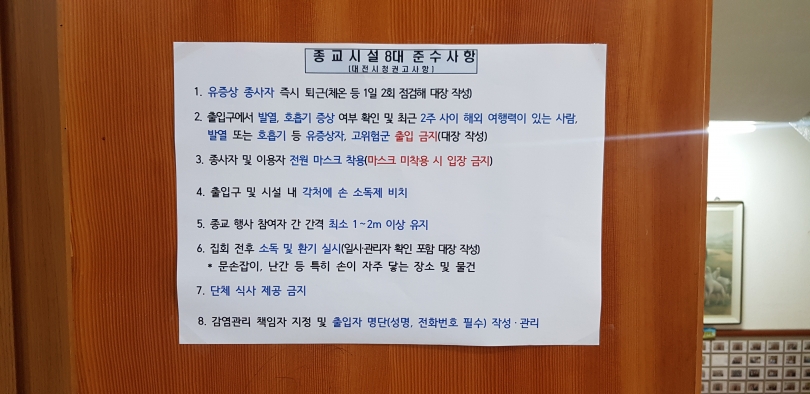 종교시설 8대 준수사항
(대전시청권고사항)
1. 유증상 종사자 즉시 퇴근(체온 등 1일 2회 점검해 대장 작성)
2. 출입구에서 발열, 호흡기 증상 여부 확인 및 최근 2주 사이 해외 여행력이 있는 사람,
발열 또는 호흡기 등 유증상자, 고위험군 출입 금지(대장 작성)
3. 종사자 및 이용자 전원 마스크 착용(마스크 미착용 시 입장 금지)
4. 출입구 및 시설 내 각처에 손 소독제 비치
5. 종교 행사 참여자 간 간격 최소 1~2m 이상 유지
6. 집회 전후 소독 및 환기 실시(일시·관리자 확인 포함 대장 작성)
* 문손잡이, 난간 등 특히 손이 자주 닿는 장소 및 물건
7. 단체 식사 제공 금지
8. 감염관리 책임자 지정 및 출입자 명단(성명, 전화번호 필수) 작성·관리